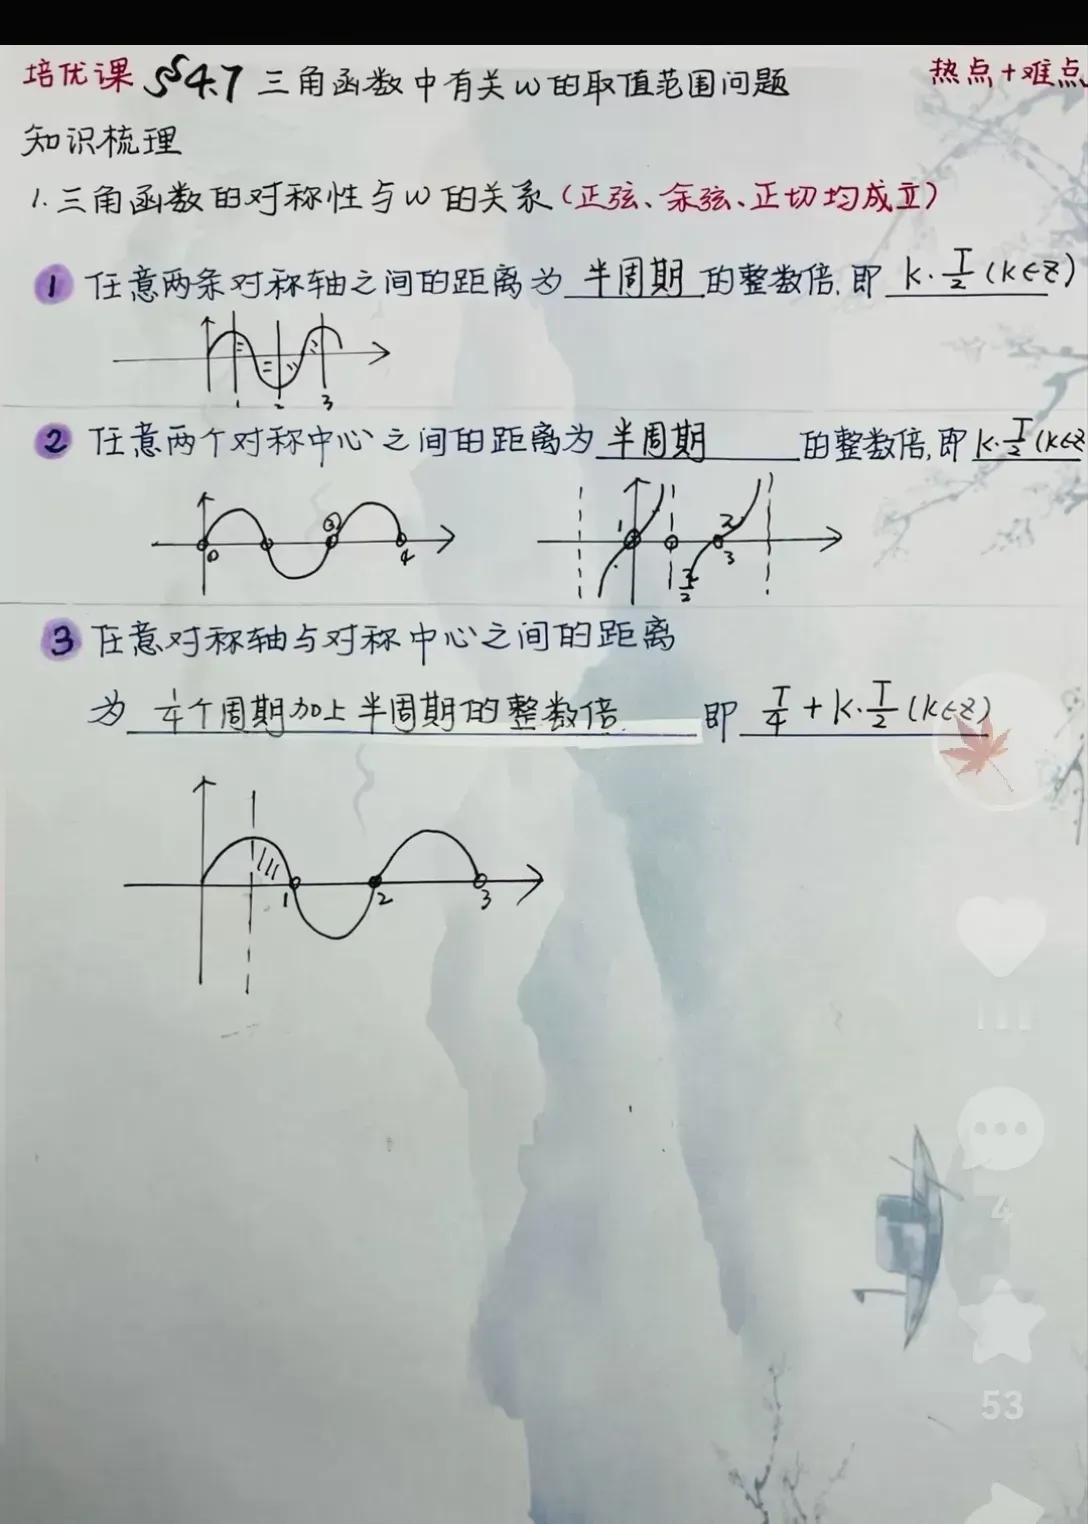 培优课 §4.7 三角函数中有关w的取值范围问题 热点+难点
知识梳理
1. 三角函数的对称性与w的关系(正弦、余弦、正切均成立)
1 任意两条对称轴之间的距离为 半周期 的整数倍,即 k·T/2 (k∈Z)
1 2 3
2 任意两个对称中心之间的距离为 半周期 的整数倍,即 k·T/2 (k∈Z
0 3 4
1 2 3
3 任意对称轴与对称中心之间的距离
为 1/4个周期加上半周期的整数倍. 即 T/4 + k·T/2 (k∈Z)
1 2 3
111
4
53